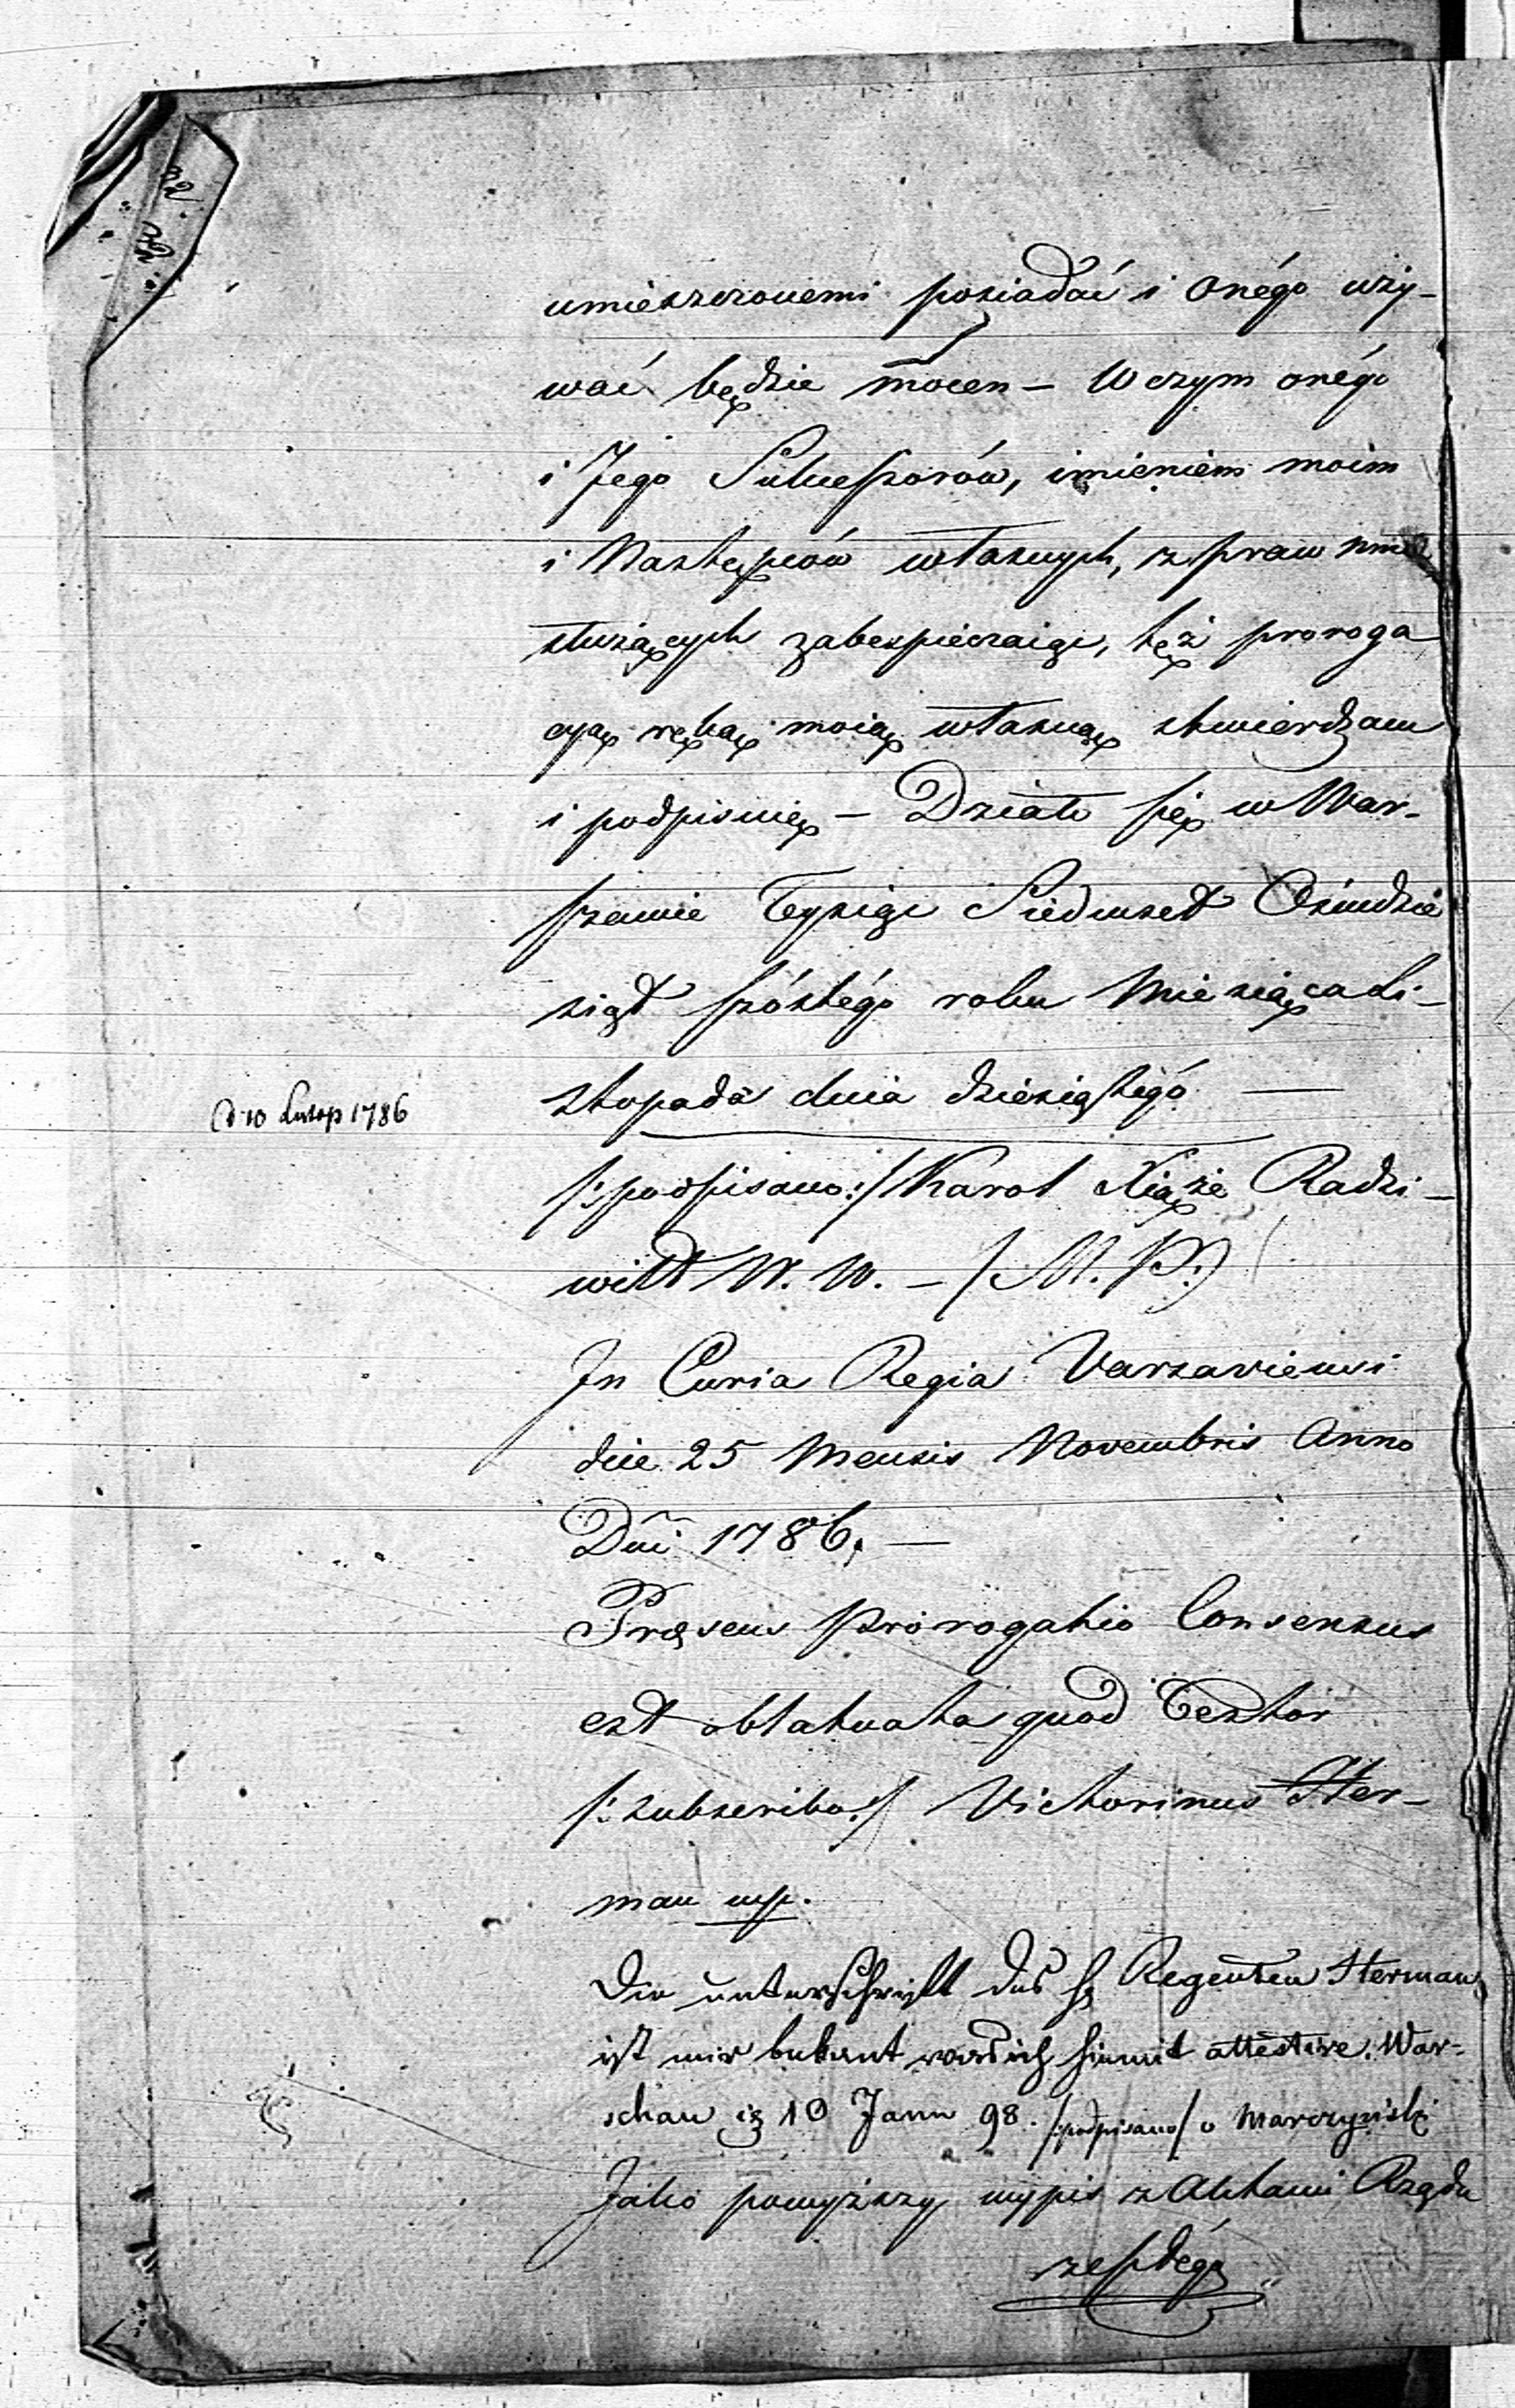 umieszczonemi posiadać i onégo uży-
wać będzie mocen — W czym onégo
i Jego Sukcessorów, imieniem moim
i Następców własnych, z praw mnie
służących zabespieczaiąc, tęż proroga
cyą ręką moią własną stwierdzam
i podpisuię — Działo się w War-
szawie Tysiąc Siedmset Ośmdzie
siąt szóstégo roku Miesiąca Li-
stopada dnia dziesiątégo —
d 10 Listop 1786
/:podpisano:/ Karol Xiąże Radzi-
wiłł W. W. — (M. P.)
In Curia Regia Varsaviensi
die 25 Mensis Novembris Anno
Dni 1786. —
Præsens Prorogatio Consensus
est oblatuata quod Testor
/:subscribo:/ Victorinus Her-
man mp.
Die unterschrifft des H Regenten Herman
ist mir bekant welches ich hiemit attestire. War-
schau 10 Janu 98. /:podpisano/ v Marczynski
Jako powyższy wypis z Aktami Rządu